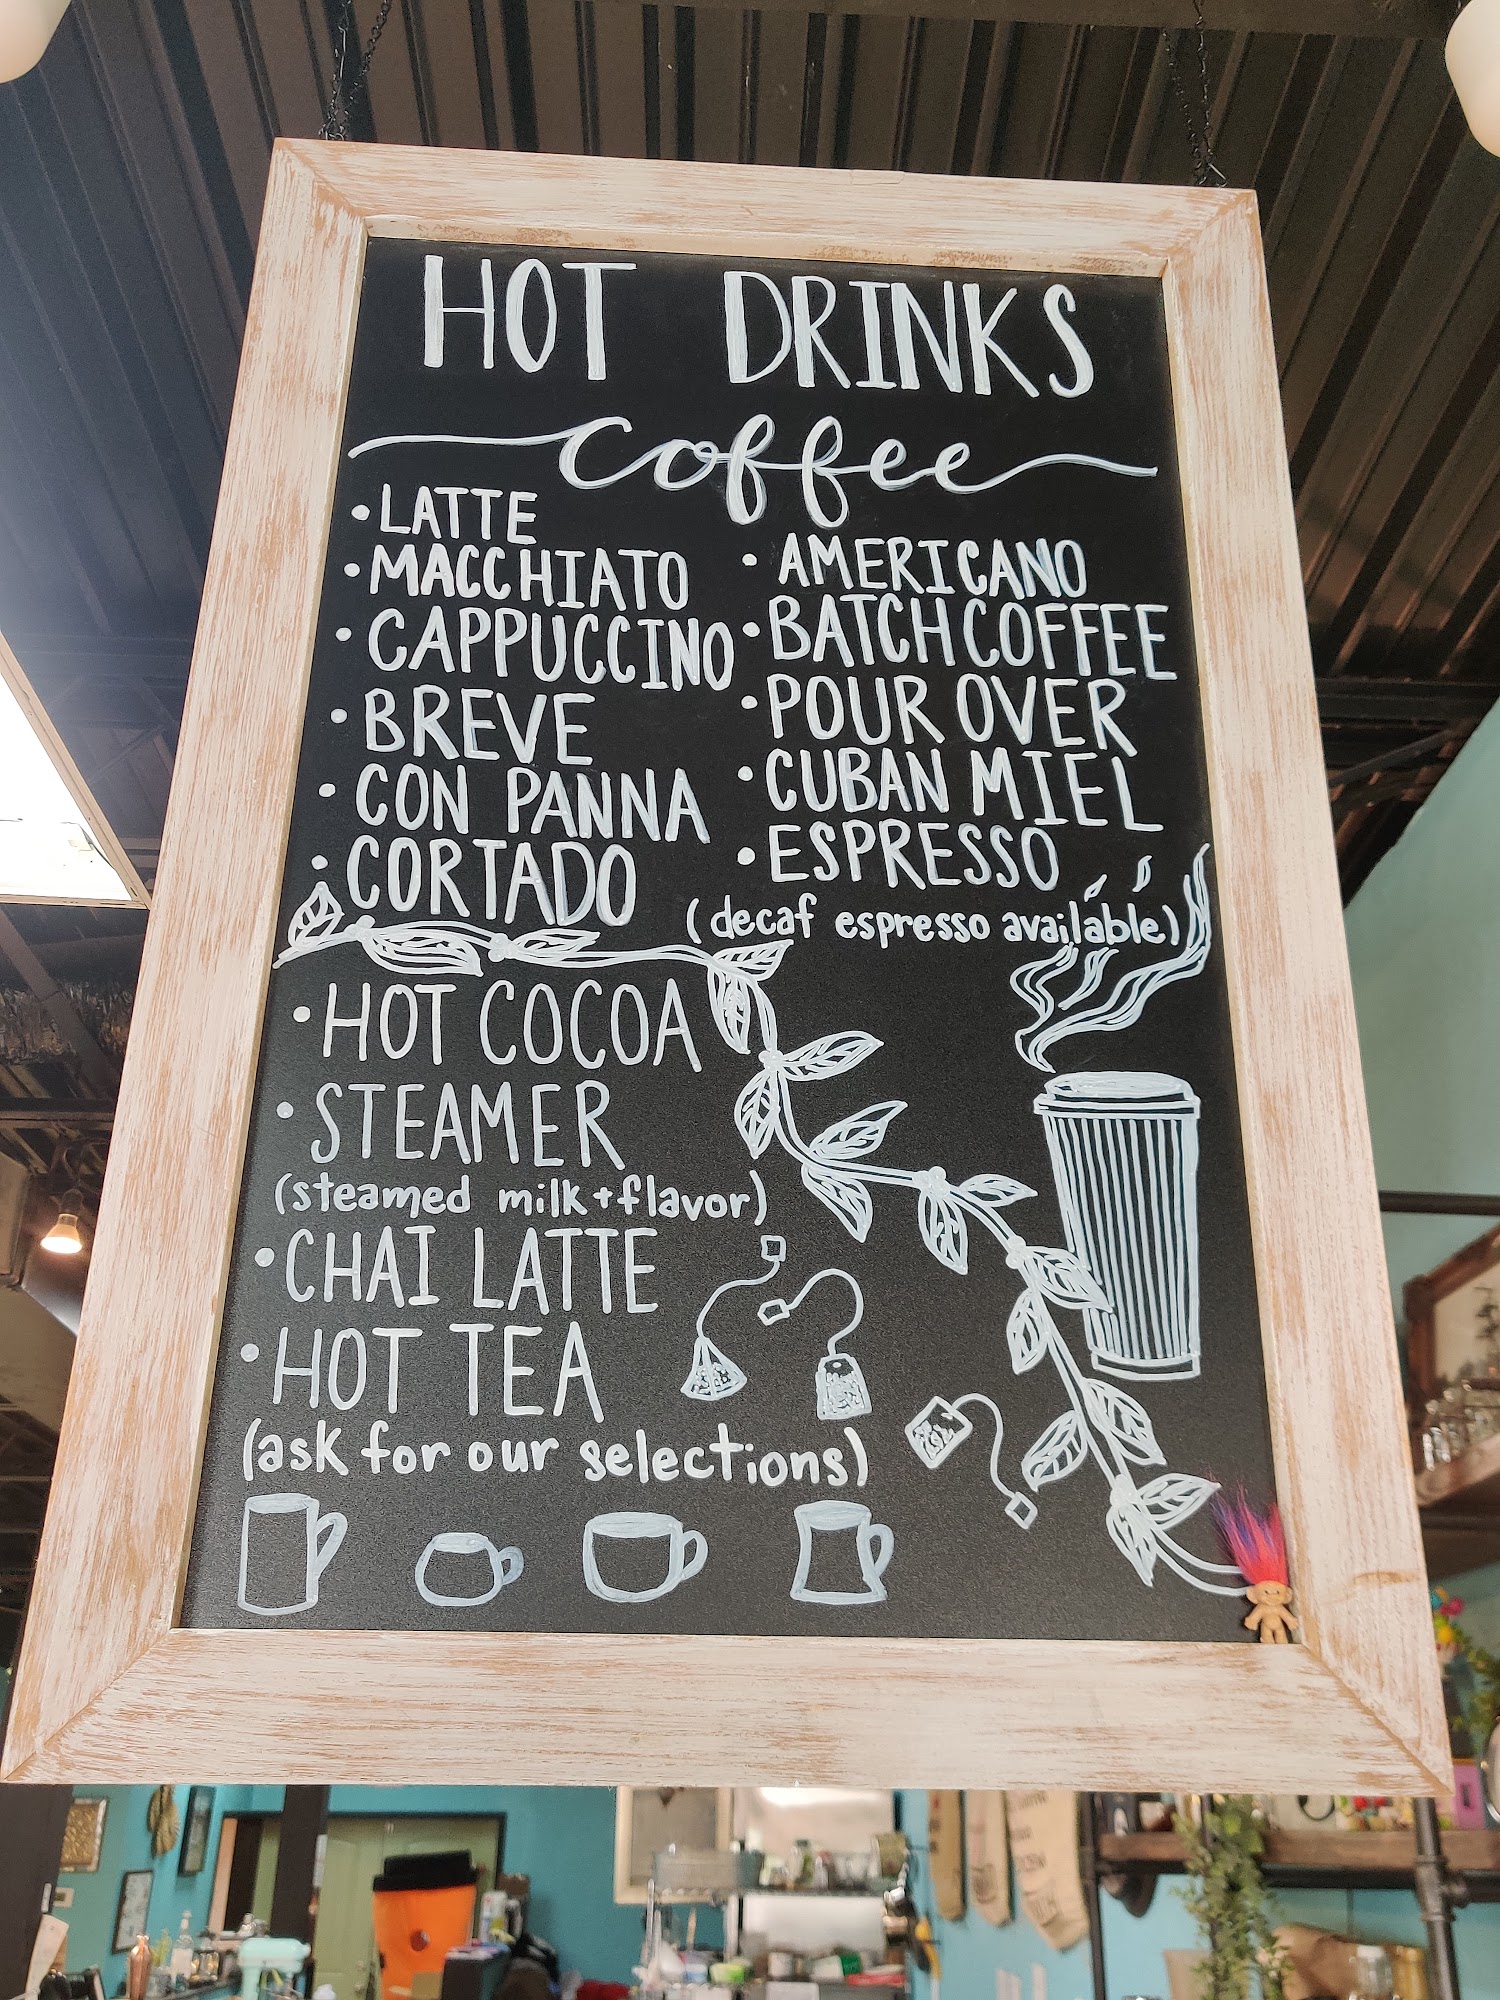 HOT DRINKS
coffee
• LATTE
• MACCHIATO
• CAPPUCCINO
• BREVE
• CON PANNA
• CORTADO
• AMERICANO
• BATCH COFFEE
• POUR OVER
• CUBAN MIEL
• ESPRESSO
(decaf espresso available)
• HOT COCOA
• STEAMER
(steamed milk + flavor)
• CHAI LATTE
• HOT TEA
(ask for our selections)